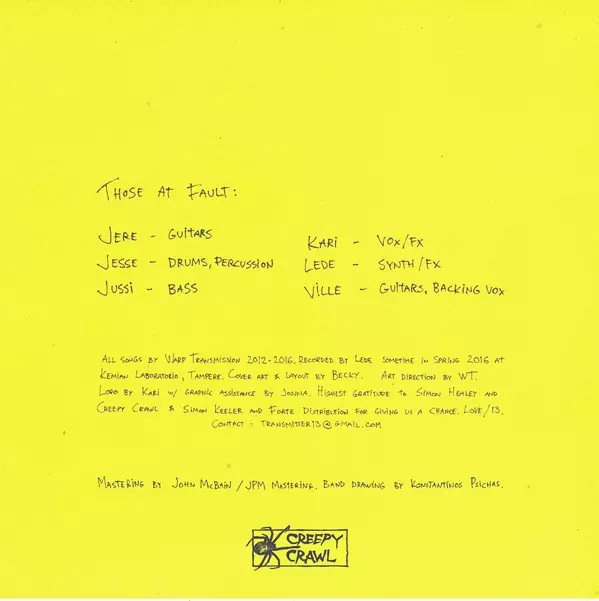 Those at Fault:
Jere - Guitars
Jesse - Drums, Percussion
Jussi - Bass
Kari - Vox/FX
Lede - Synth/FX
Ville - Guitars, Backing Vox
All songs by Warp Transmission 2012-2016. Recorded by Lede sometime in Spring 2016 at
Kemian Laboratorio, Tampere. Cover art & layout by Becky. Art direction by WT.
Logo by Kari w/ graphic assistance by Jonna. Highest gratitude to Simon Healey and
Creepy Crawl & Simon Keeler and Forte Distribution for giving us a chance. Love/13.
Contact : transmitter13@gmail.com
Mastering by John McBain / JPM Mastering. Band drawing by Konstantinos Psichas.
CREEPY
CRAWL